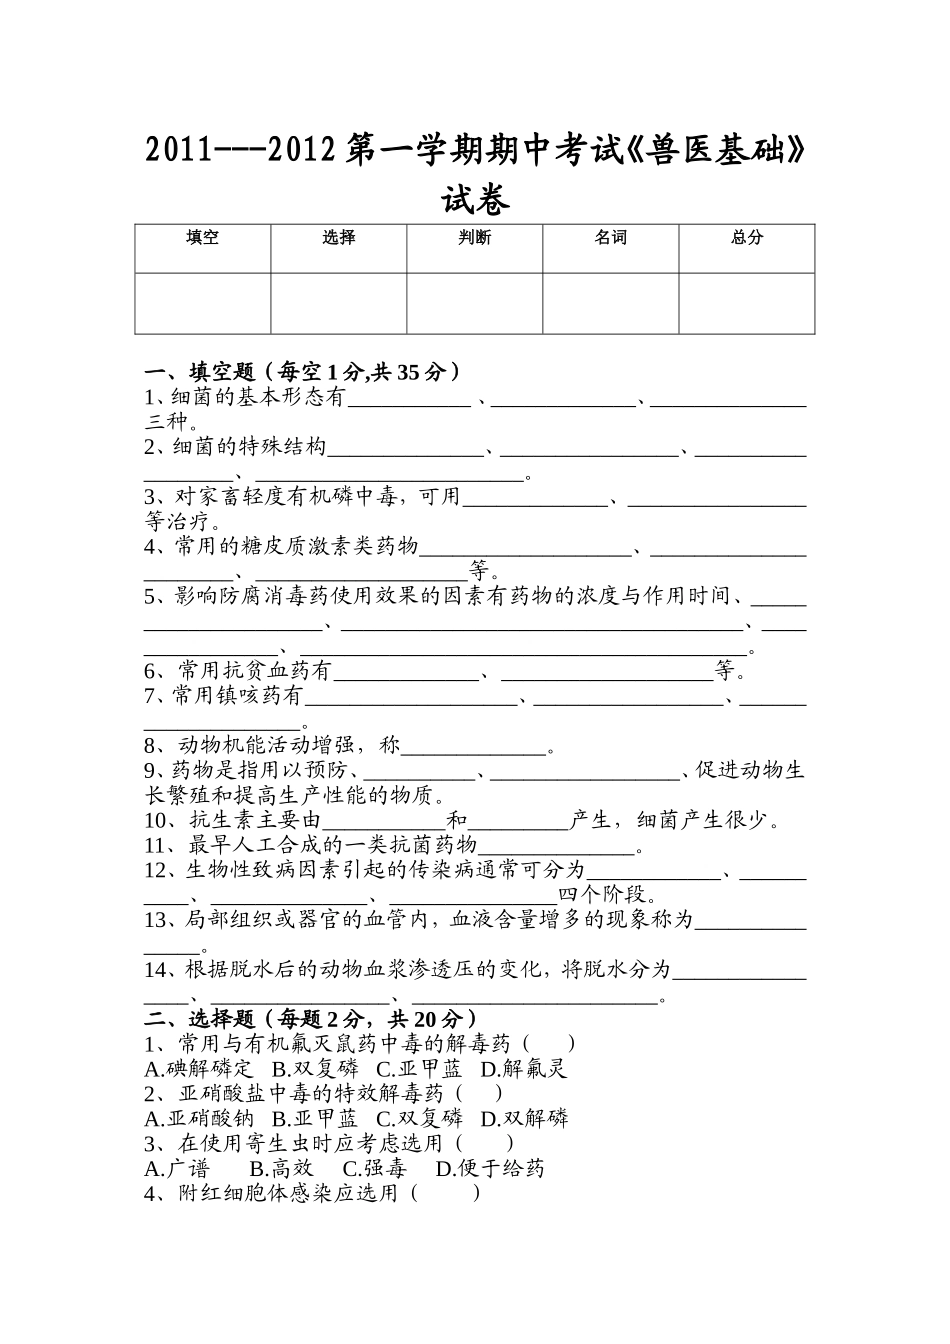 2011---2012第一学期期中考试《兽医基础》
试卷
填空 选择 判断 名词 总分
一、填空题（每空1分,共35分）
1、细菌的基本形态有___________ 、_____________、______________
三种。
2、细菌的特殊结构______________、________________、__________
________、________________________。
3、对家畜轻度有机磷中毒，可用_____________、________________
等治疗。
4、常用的糖皮质激素类药物___________________、______________
________、___________________等。
5、影响防腐消毒药使用效果的因素有药物的浓度与作用时间、_____
________________、____________________________________、____
____________、________________________________________。
6、常用抗贫血药有_____________、___________________等。
7、常用镇咳药有___________________、_________________、______
______________。
8、动物机能活动增强，称_____________。
9、药物是指用以预防、__________、_________________、促进动物生
长繁殖和提高生产性能的物质。
10、抗生素主要由___________和_________产生，细菌产生很少。
11、最早人工合成的一类抗菌药物______________。
12、生物性致病因素引起的传染病通常可分为____________、______
____、______________、_______________四个阶段。
13、局部组织或器官的血管内，血液含量增多的现象称为__________
_____。
14、根据脱水后的动物血浆渗透压的变化，将脱水分为____________
____、________________、______________________。
二、选择题（每题2分，共20分）
1、常用与有机氟灭鼠药中毒的解毒药（ ）
A.碘解磷定 B.双复磷 C.亚甲蓝 D.解氟灵
2、亚硝酸盐中毒的特效解毒药（ ）
A.亚硝酸钠 B.亚甲蓝 C.双复磷 D.双解磷
3、在使用寄生虫时应考虑选用（ ）
A.广谱 B.高效 C.强毒 D.便于给药
4、附红细胞体感染应选用（ ）